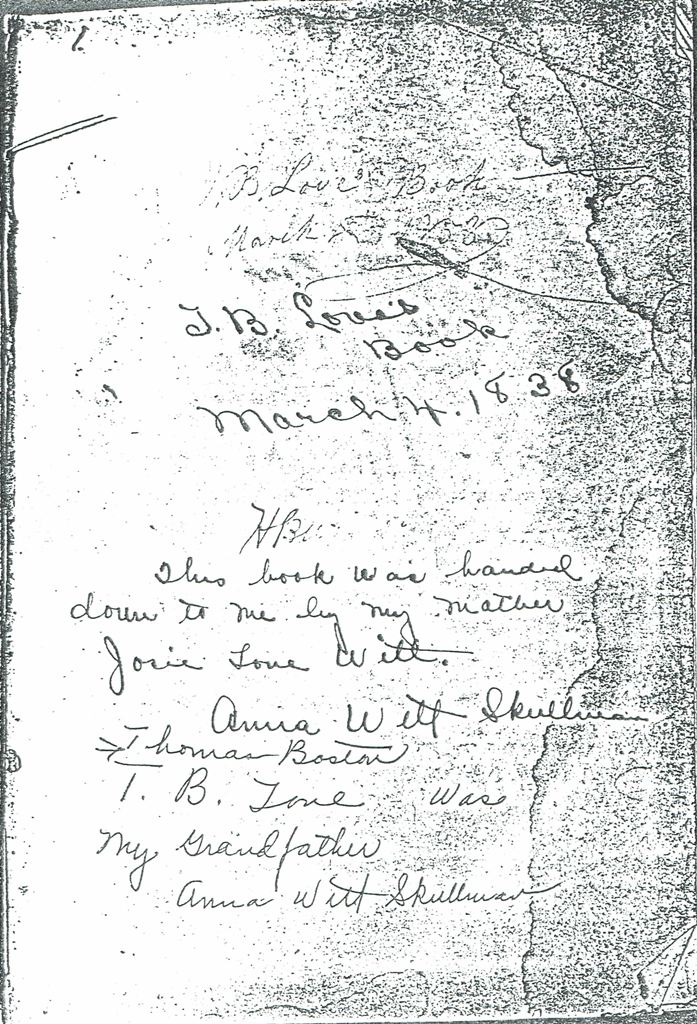 1
B. Love's Book
March
T. B. Love's
Book
March 4. 1838
HB
This book was handed
down to me by my mother
Josie Love Witt.
Anna Witt Skullman
Thomas Boston
T. B. Love was
My Grandfather
Anna Witt Skullman